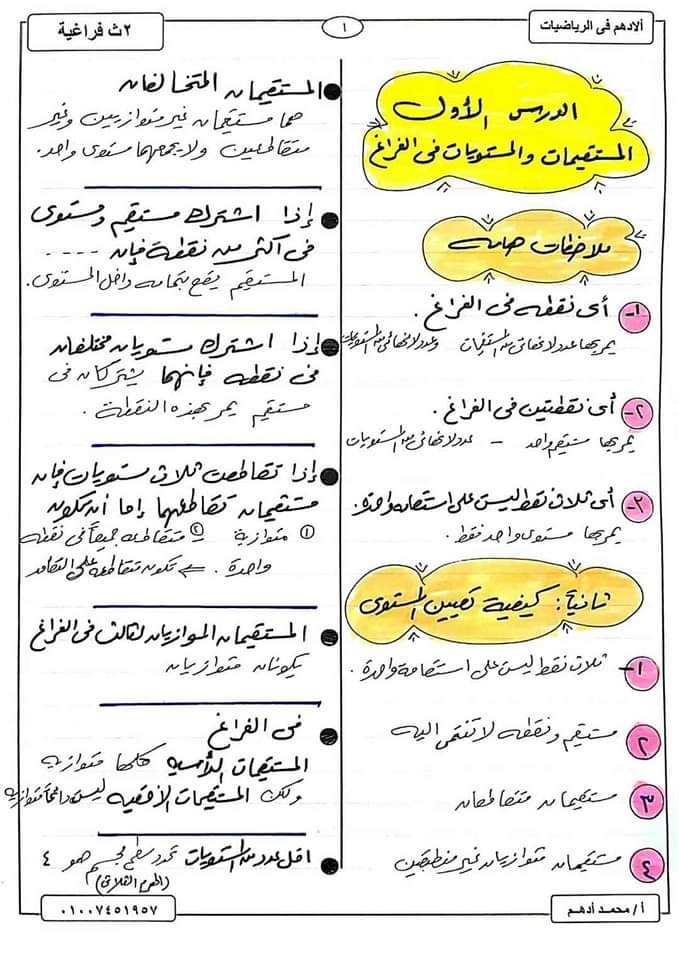 ألادهم فى الرياضيات
١
٢ث فراغية
الدرس الأول
المستقيمات والمستويات فى الفراغ
ملاحظات هامه
١- أى نقطه فى الفراغ.
يمر بها عدد لا نهائى من المستقيمات وعدد لا نهائى من المستويات
٢- أى نقطتين فى الفراغ.
يمر بها مستقيم واحد - عدد لا نهائى من المستويات
٣- أى ثلاث نقط ليس على استقامه واحدة.
يمر بها مستوى واحد فقط.
ثانياً: كيفية تعيين المستوى
١- ثلاث نقط ليس على استقامة واحدة.
٢ مستقيم ونقطه لا تنتمى اليه
٣ مستقيمان متقاطعان
٤ مستقيمان متوازيان غير منطبقين
المستقيمان المتخالفان
هما مستقيمان غير متوازيين وغير
متقاطعين ولا يجمعهما مستوى واحد.
إذا اشترك مستقيم ومستوى
فى أكثر من نقطة فإن ....
المستقيم يقع بتمامه داخل المستوى.
إذا اشترك مستويان مختلفان
فى نقطه فإنهما يشتركان فى
مستقيم يمر بهذه النقطة.
إذا تقاطعت ثلاث مستويات فإن
مستقيمان تقاطعهما إما أن تكون
① متوازية ② متقاطعه جميعاً فى نقطه
واحدة. تكون متقاطعه على التعامد
المستقيمان الموازيان لثالث فى الفراغ
يكونان متوازيان
فى الفراغ
المستقيمات الرأسيه كلها متوازيه
ولكن المستقيمات الأفقيه ليس دائماً متوازيه
اقل عدد من المستويات تحدد سطح مجسم هو ٤
(الهرم الثلاثى)
أ/ محمد أدهم
٠١٠٠٧٤٥١٩٥٧